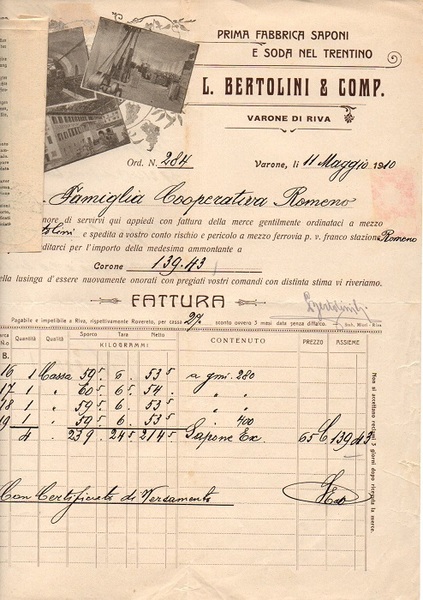 PRIMA FABBRICA SAPONI
E SODA NEL TRENTINO
L. BERTOLINI & COMP.
VARONE DI RIVA
Ord. N. 284
Varone, li 11 Maggio 1910
Famiglia Cooperativa Romeno
nore di servirvi qui appiedi con fattura della merce gentilmente ordinataci a mezzo
tolini e spedita a vostro conto rischio e pericolo a mezzo ferrovia p. v. franco stazione Romeno
ditarci per l'importo della medesima ammontante a
Corone 139.43
ella lusinga d'essere nuovamente onorati con pregiati vostri comandi con distinta stima vi riveriamo.
FATTURA
LBertolini
Pagabile e impetibile a Riva, rispettivamente Rovereto, per cassa 2% sconto ovvero 3 mesi data senza diffalco.
N.o Quantità Qualità Sporco Tara Netto CONTENUTO PREZZO ASSIEME
KILOGRAMMI
B.
16 1 Cassa 59⁵ 6 53⁵ a gmi. 280
17 1 " 60⁵ 6 54⁵ " "
18 1 " 59⁵ 6 53⁵ " "
19 1 " 59⁵ 6 53⁵ " 400
4 239 24⁵ 214⁵ Sapone Ex 65 C 139.43
Con Certificato di Versamento
Non si accettano reclami 3 giorni dopo ricevuta la merce.